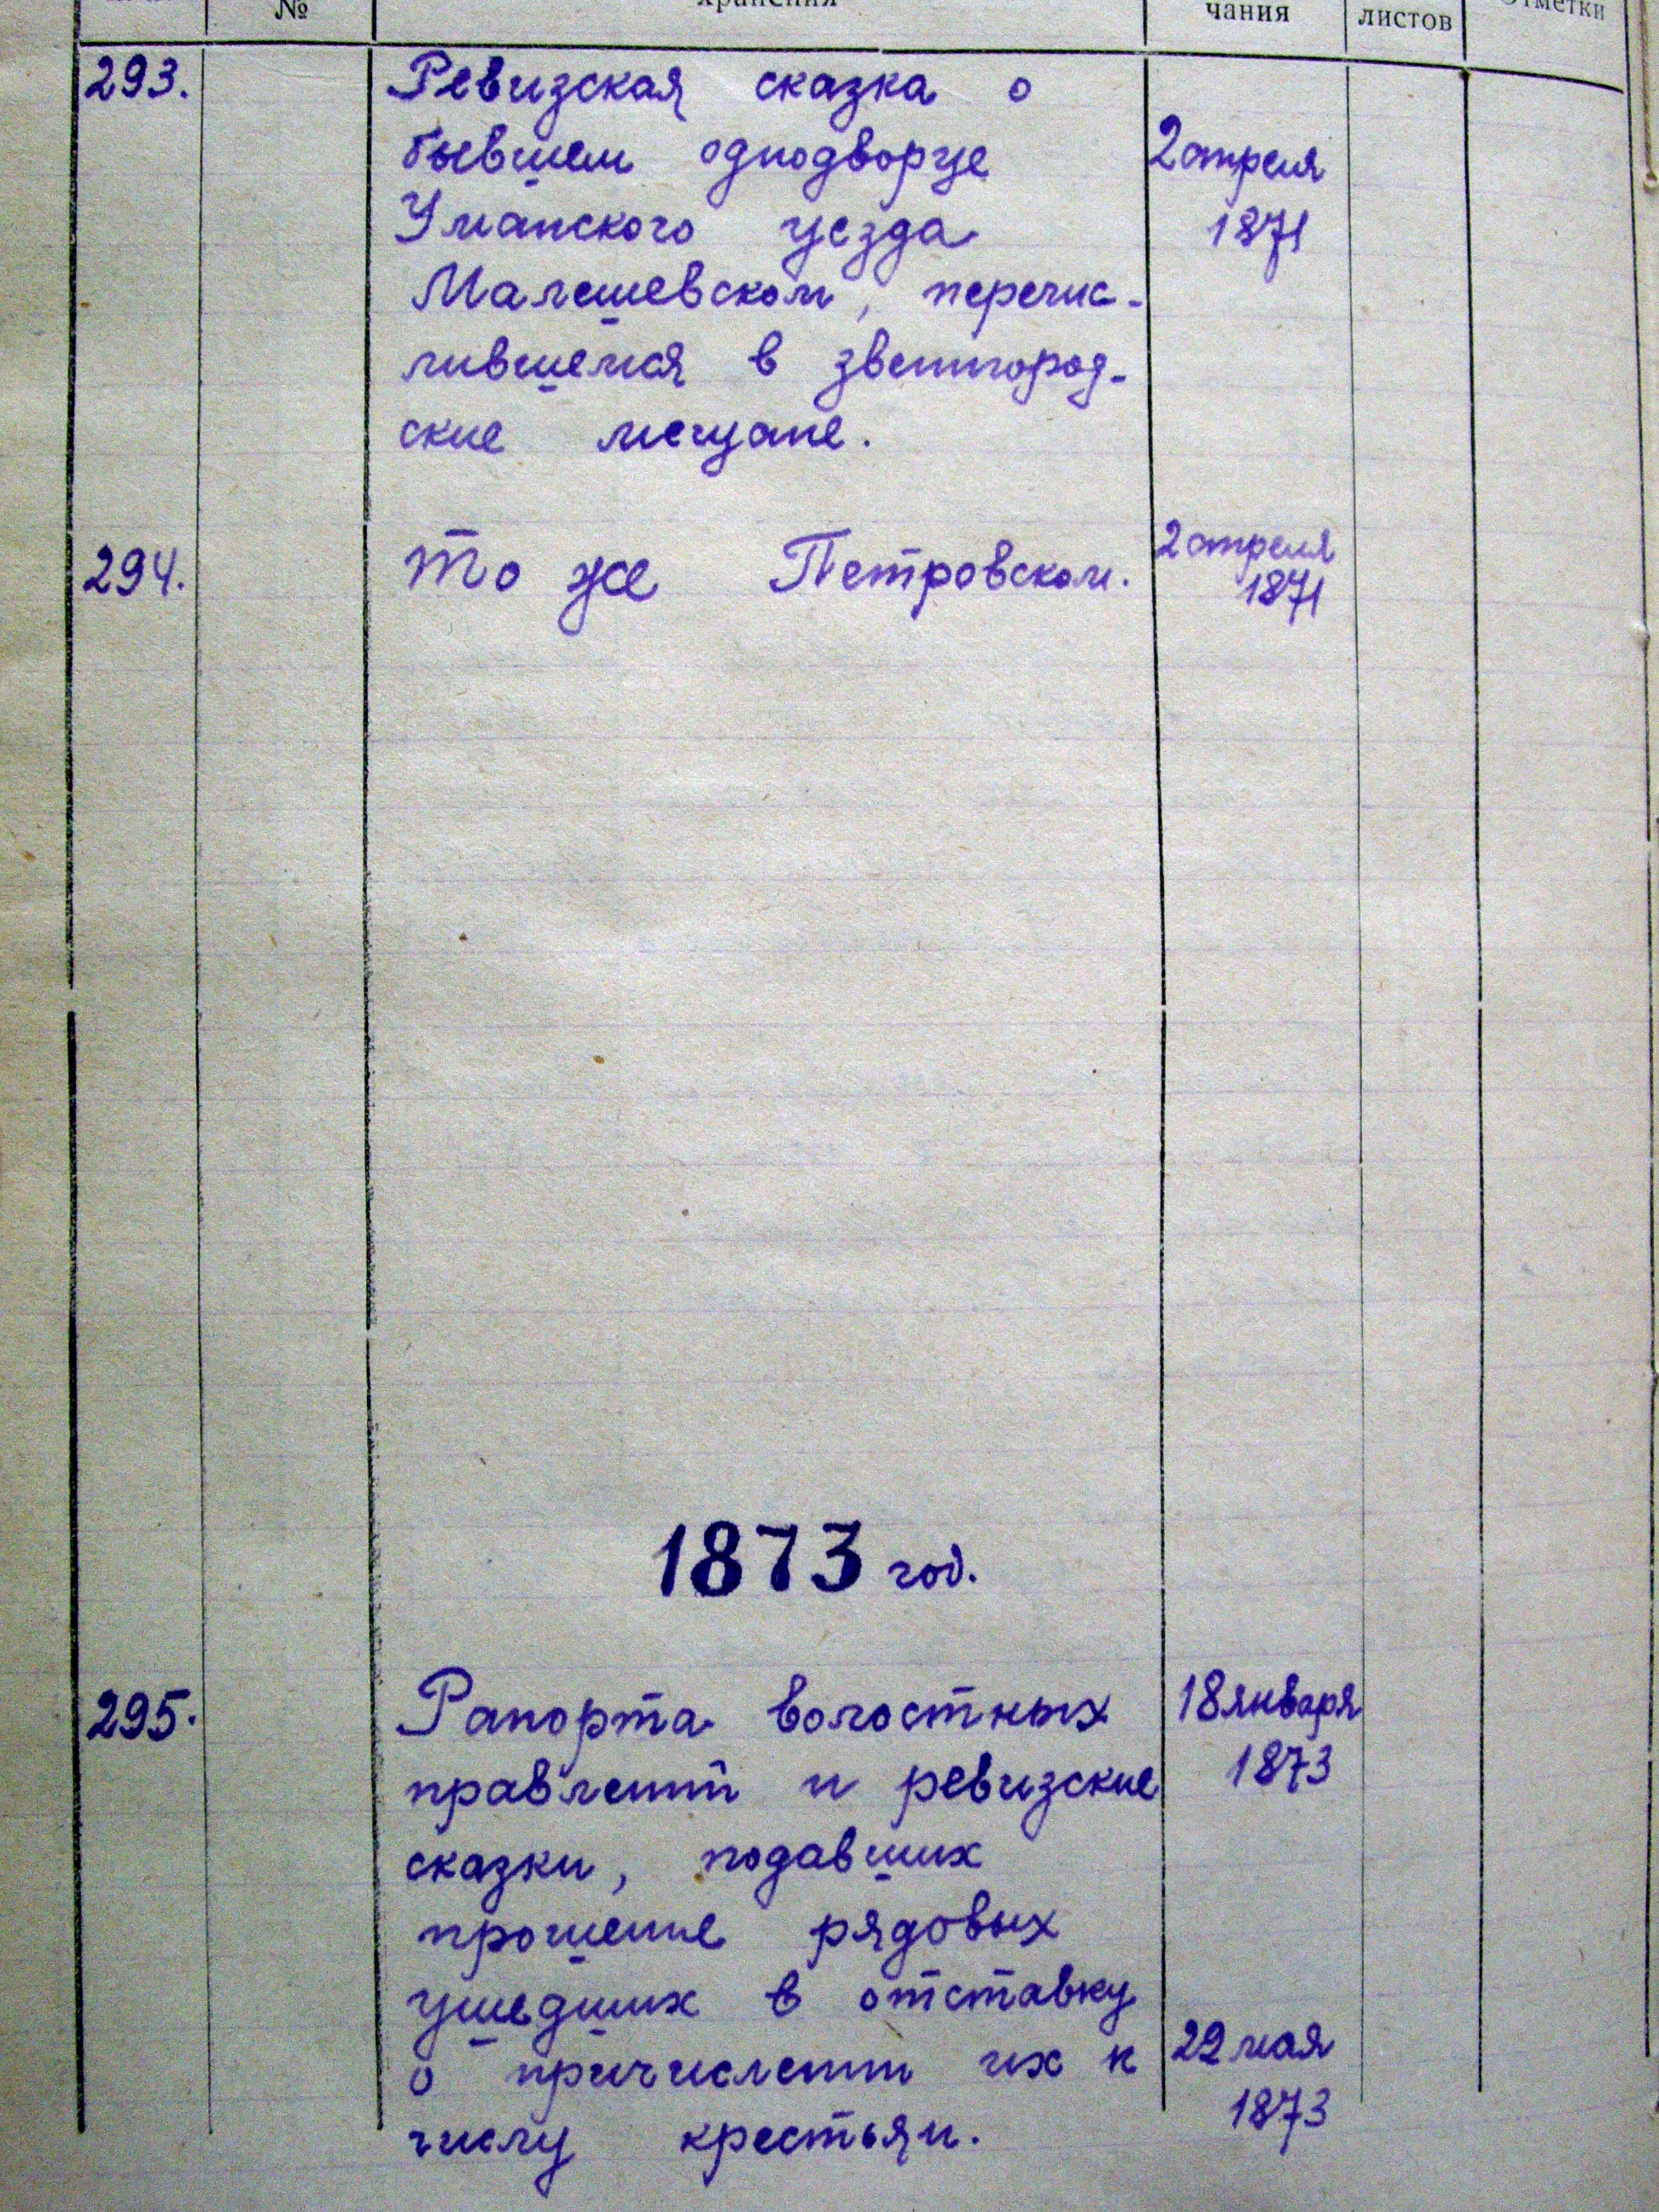 № хранения чания листов Отметки
293. Ревизская сказка о
бывшем однодворце 2 апреля
Уманского уезда 1871
Малешевском, перечис-
лившемся в звенигород-
ские мещане.
294. То же Петровском. 2 апреля
1871
1873 год.
295. Рапорта волостных 18 января
правлений и ревизские 1873
сказки, подавших
прошение рядовых
ушедших в отставку
о причислении их к 22 мая
числу крестьян. 1873